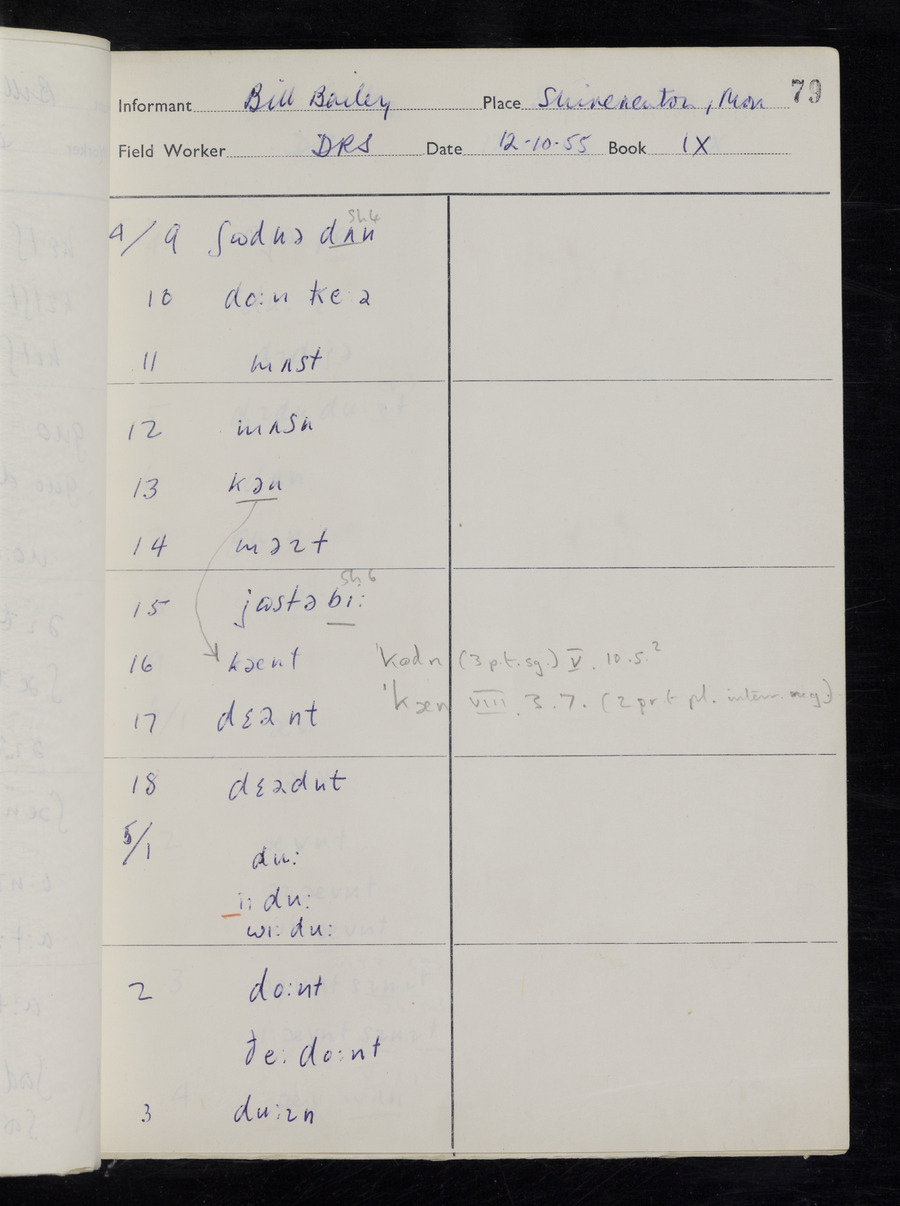 79
Informant Bill Bailey Place Shirenewton, Mon
Field Worker DRS Date 12-10-55 Book IX
4/9 ʃɷdnə dʌn Sh.4
10 do:n kɛə
11 mʌst
12 mʌsn
13 kən
14 məɪt
15 jɷstə bɪ: Sh.6
16 kænt 'kɷdn (3 p.t. sg.) V. 10.5.²
17 dɛənt 'kæn VIII. 3.7. (2 pr.t. pl. interr. neg.)
18 dɛədnt
5/1 du:
i: du:
wɪ: du:
2 do:nt
ðe: do:nt
3 du:zn